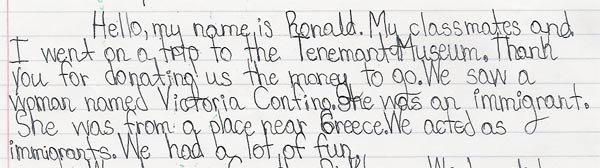 Hello, my name is Ronald. My classmates and
I went on a trip to the Tenement Museum. Thank
you for donating us the money to go. We saw a
woman named Victoria Confino. She was an immigrant.
She was from a place near Greece. We acted as
immigrants. We had a lot of fun